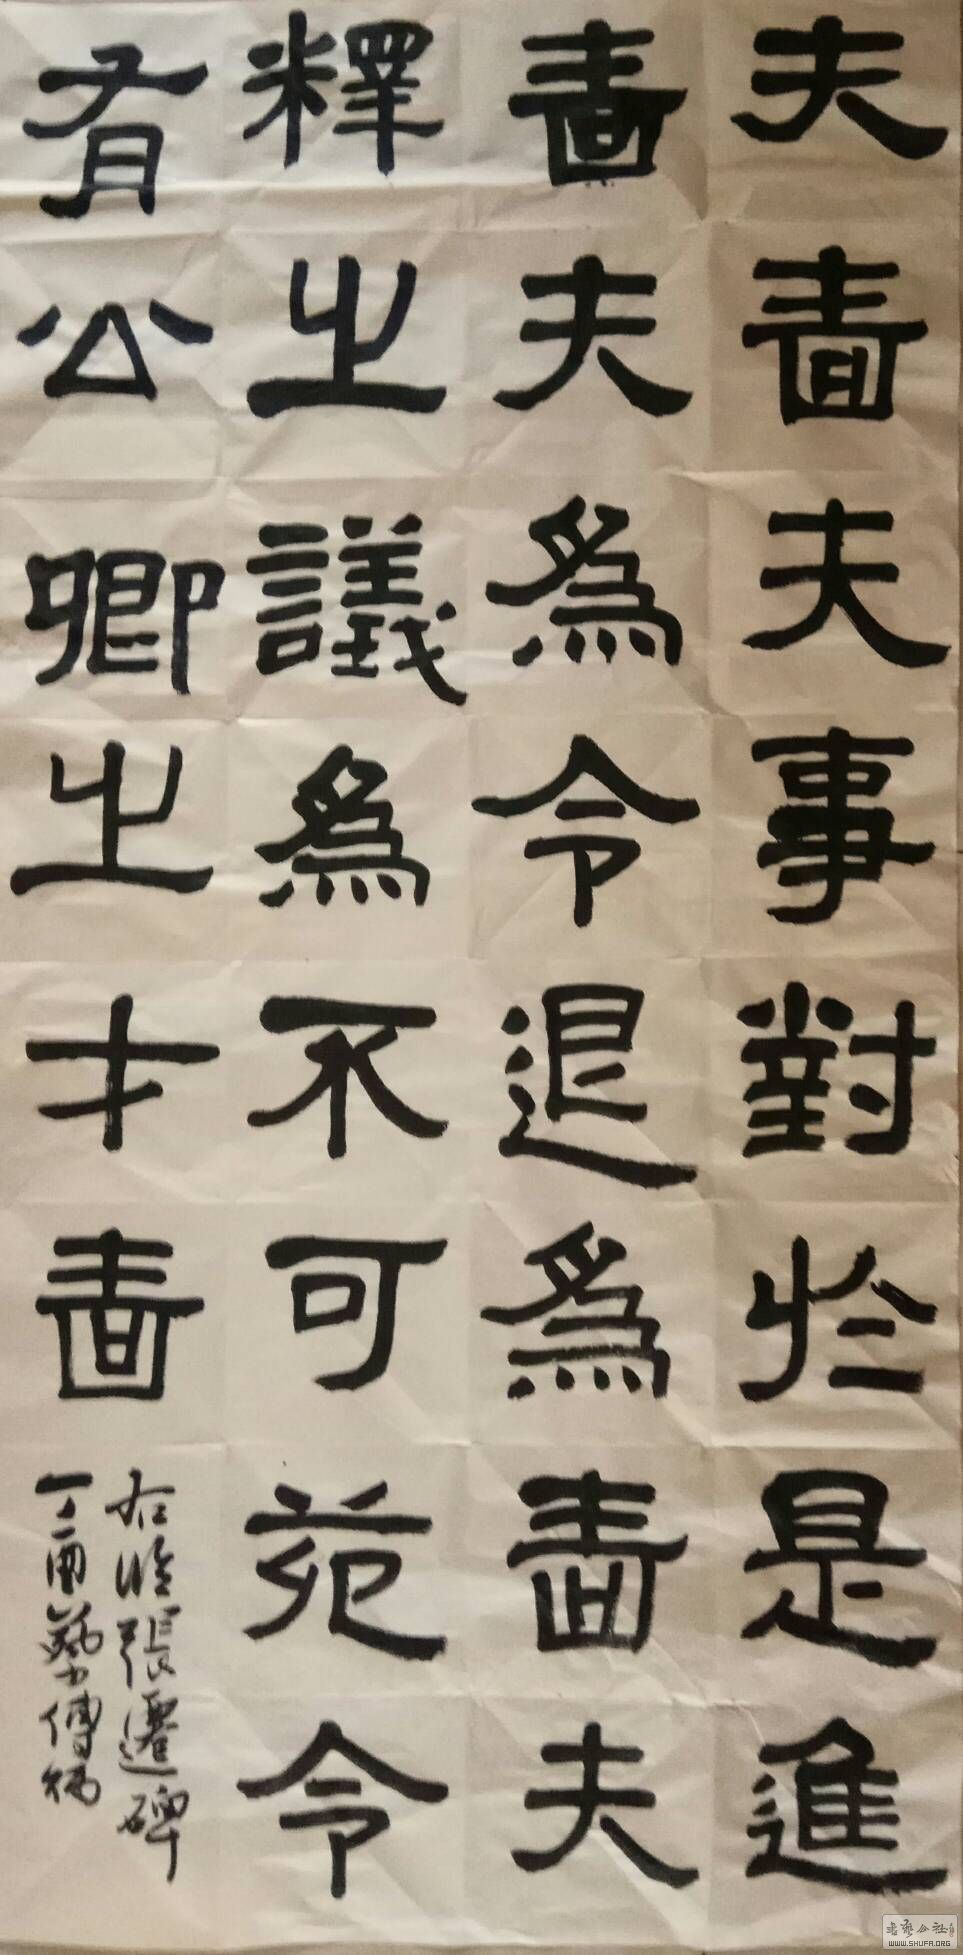 夫嗇夫事對於是進
嗇夫爲令退爲嗇夫
釋之議爲不可苑令
有公卿之才嗇
右臨張遷碑
丁酉藝
WWW.SHUFA.ORG